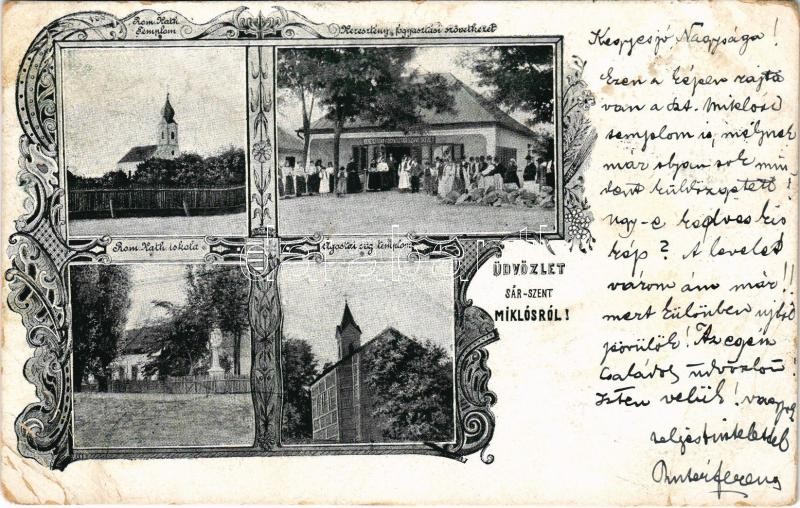 Rom. Kath. Templom
Keresztény fogyasztási szövetkezet
Rom. Kath iskola
Ágostai ev. templom
ÜDVÖZLET
SÁR-SZENT
MIKLÓSRÓL!
Nagysága!
Ezen a képen rajta
van a szt. Miklósi
templom is, melynek
már olyan sok min-
dent
ugy-e kedves kis
kép? A levelet
várom ám már!!
mert különben ujból
pörülök! Az egész
Családot üdvözlöm
Isten velük! vagyok
teljes tisztelettel